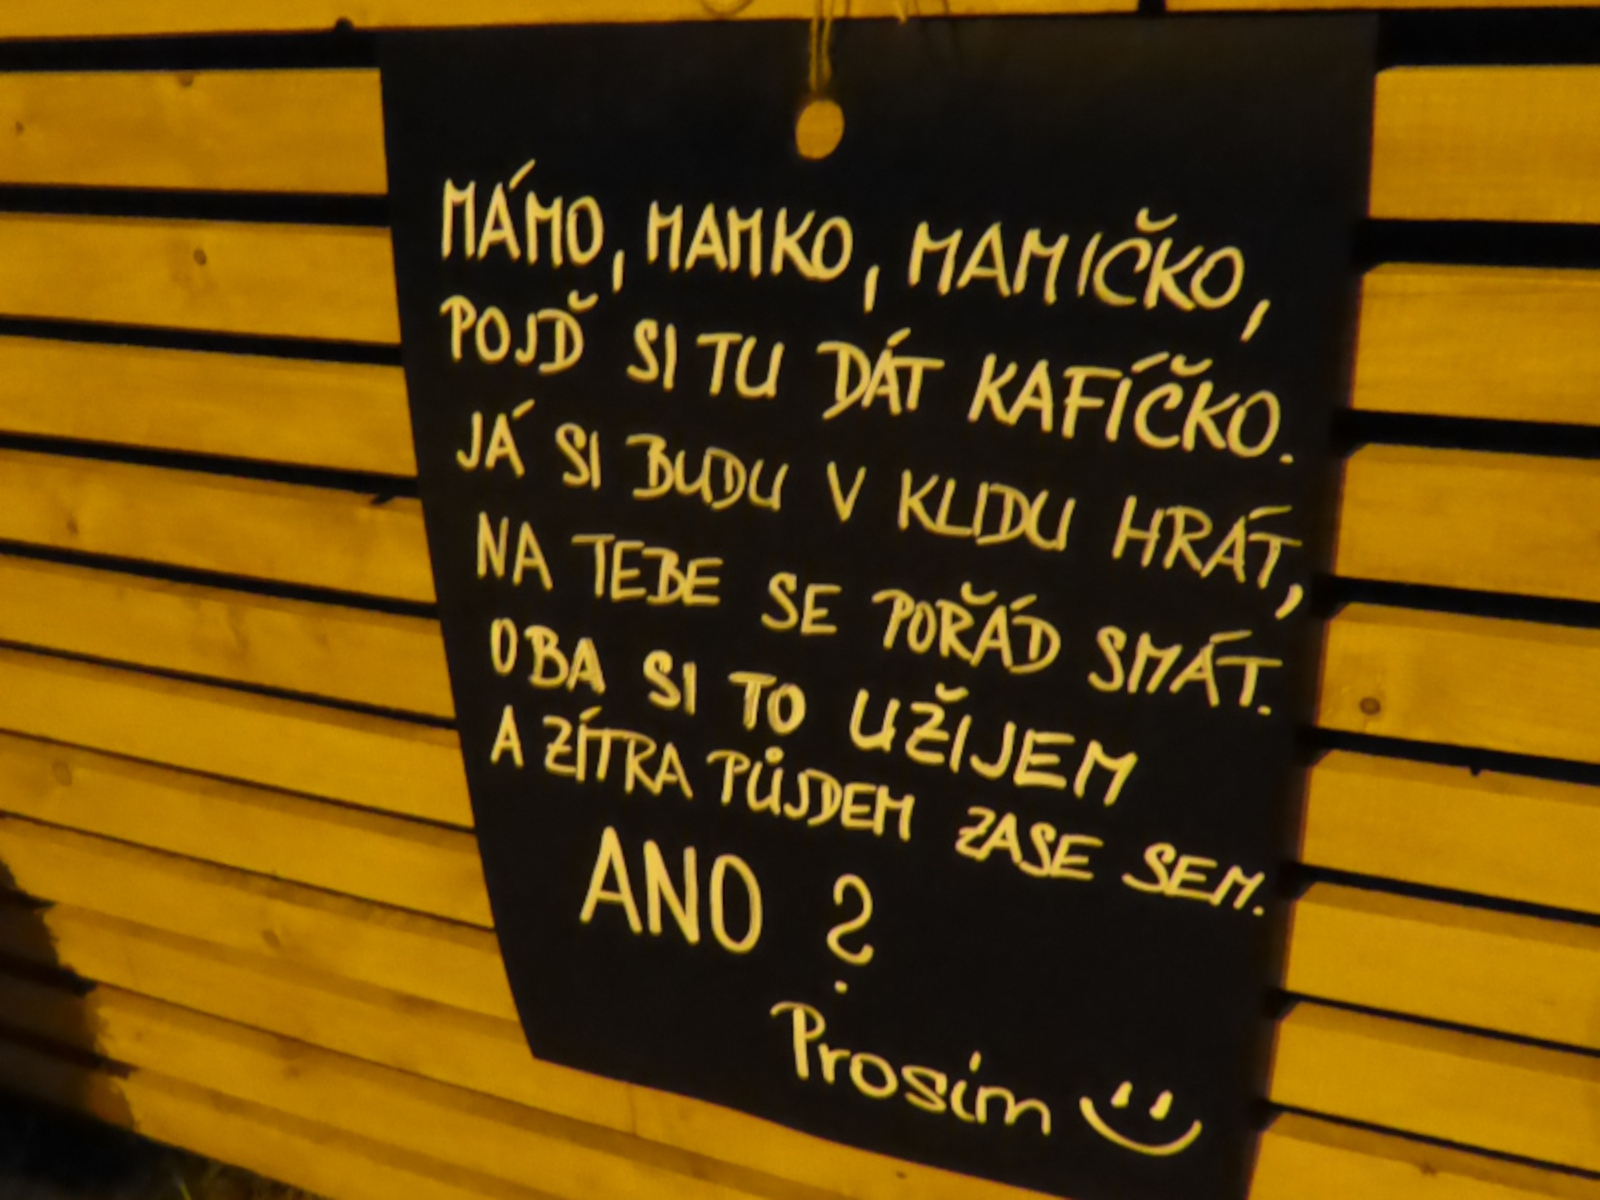 MÁMO, MAMKO, MAMIČKO,
POJĎ SI TU DÁT KAFÍČKO.
JÁ SI BUDU V KLIDU HRÁT,
NA TEBE SE POŘÁD SMÁT.
OBA SI TO UŽIJEM
A ZÍTRA PŮJDEM ZASE SEM.
ANO?
Prosím